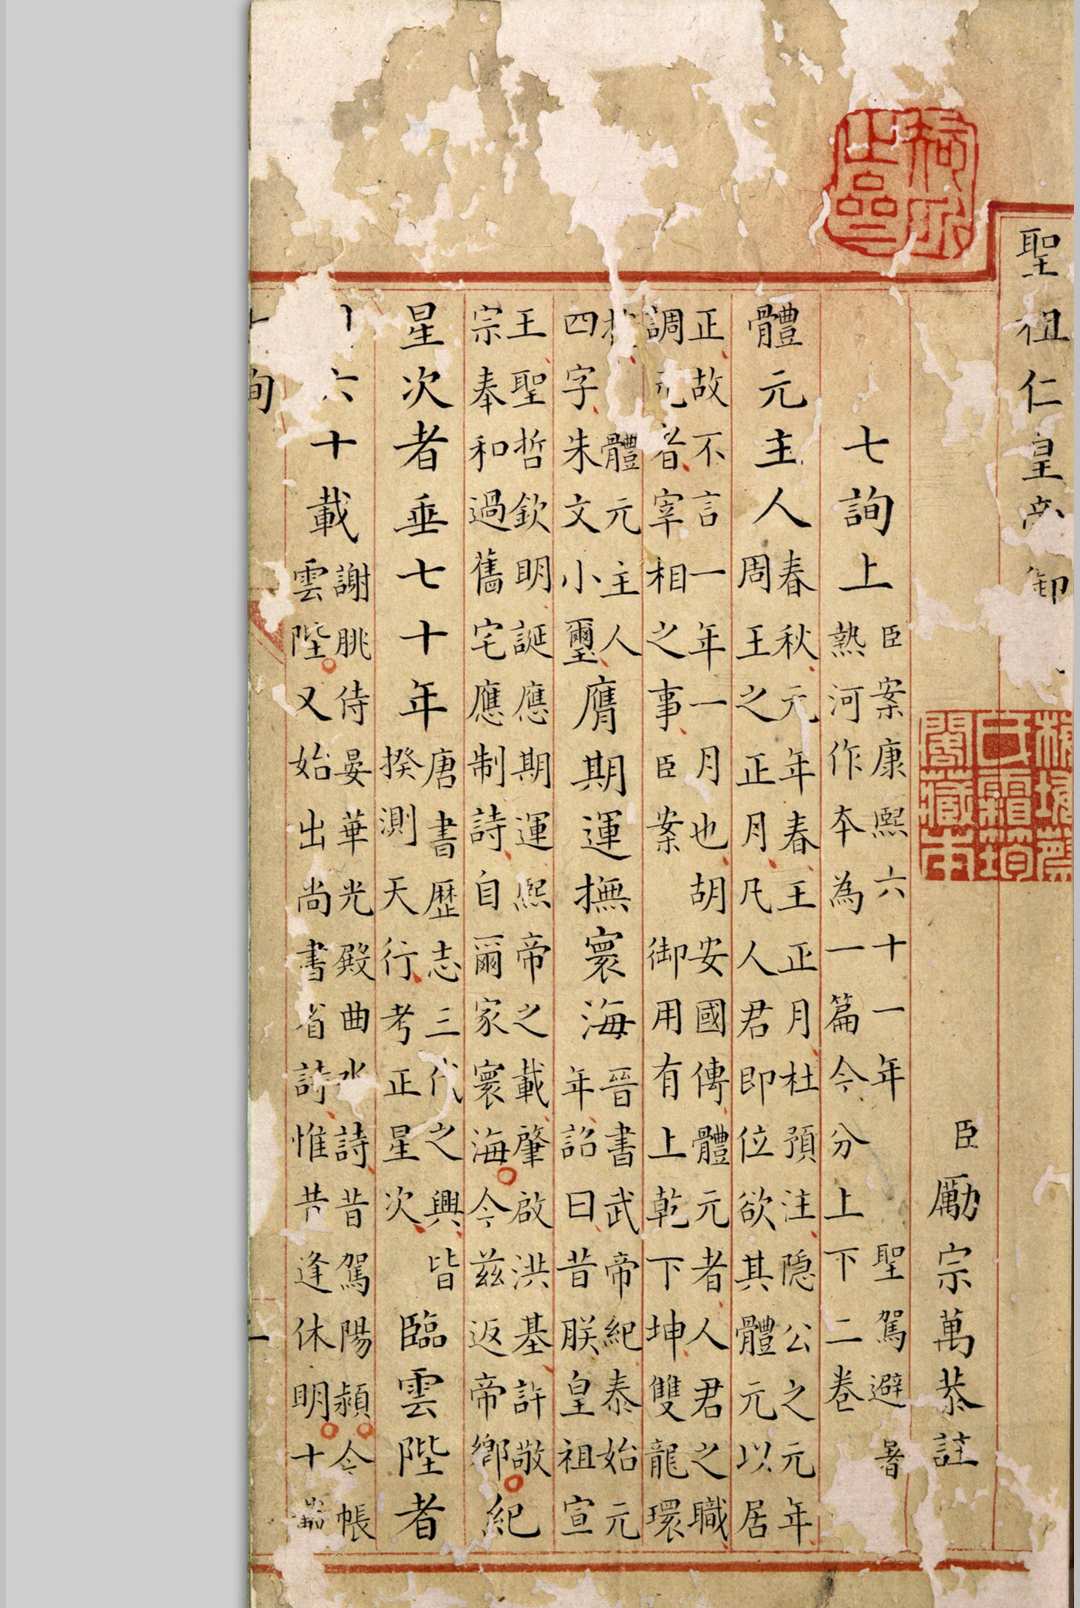 聖祖仁皇帝御
臣勵宗萬恭註
七詢上
臣案康熙六十一年聖駕避暑
熱河作本為一篇今分上下二卷
體元主人
春秋元年春王正月杜預注隱公之元年
周王之正月凡人君即位欲其體元以居
正故不言一年一月也胡安國傳體元者人君之職
調元者宰相之事臣案御用有上乾下坤雙龍環
體元主人
四字朱文小璽
膺期運撫寰海
晉書武帝紀泰始元
年詔曰昔朕皇祖宣
王聖哲欽明誕應期運熙帝之載肇啟洪基許敬
宗奉和過舊宅應制詩自爾家寰海今茲返帝鄉
紀
星次者垂七十年
唐書歷志三代之興皆
揆測天行考正星次
臨雲陛者
六十載
謝朓侍晏華光殿曲水詩昔駕陽潁今帳
雲陛又始出尚書省詩惟昔逢休明十